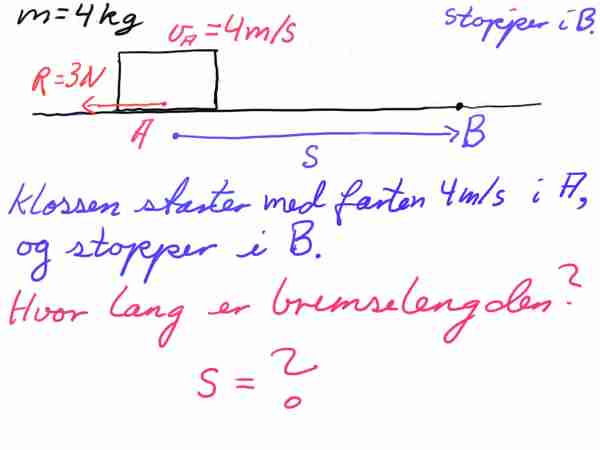 m=4kg
v_A=4m/s
stopper i B.
R=3N
A
B
S
Klossen starter med farten 4m/s i A,
og stopper i B.
Hvor lang er bremselengden?
S = ?